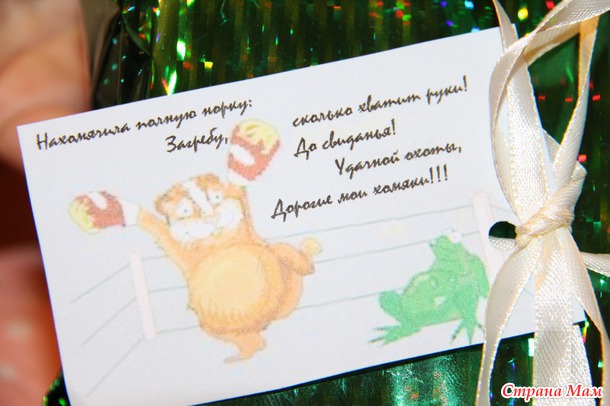 Нахомячила полную норку:
Загребу, сколько хватит руки!
До свиданья!
Удачной охоты,
Дорогие мои хомяки!!!
Страна Мам